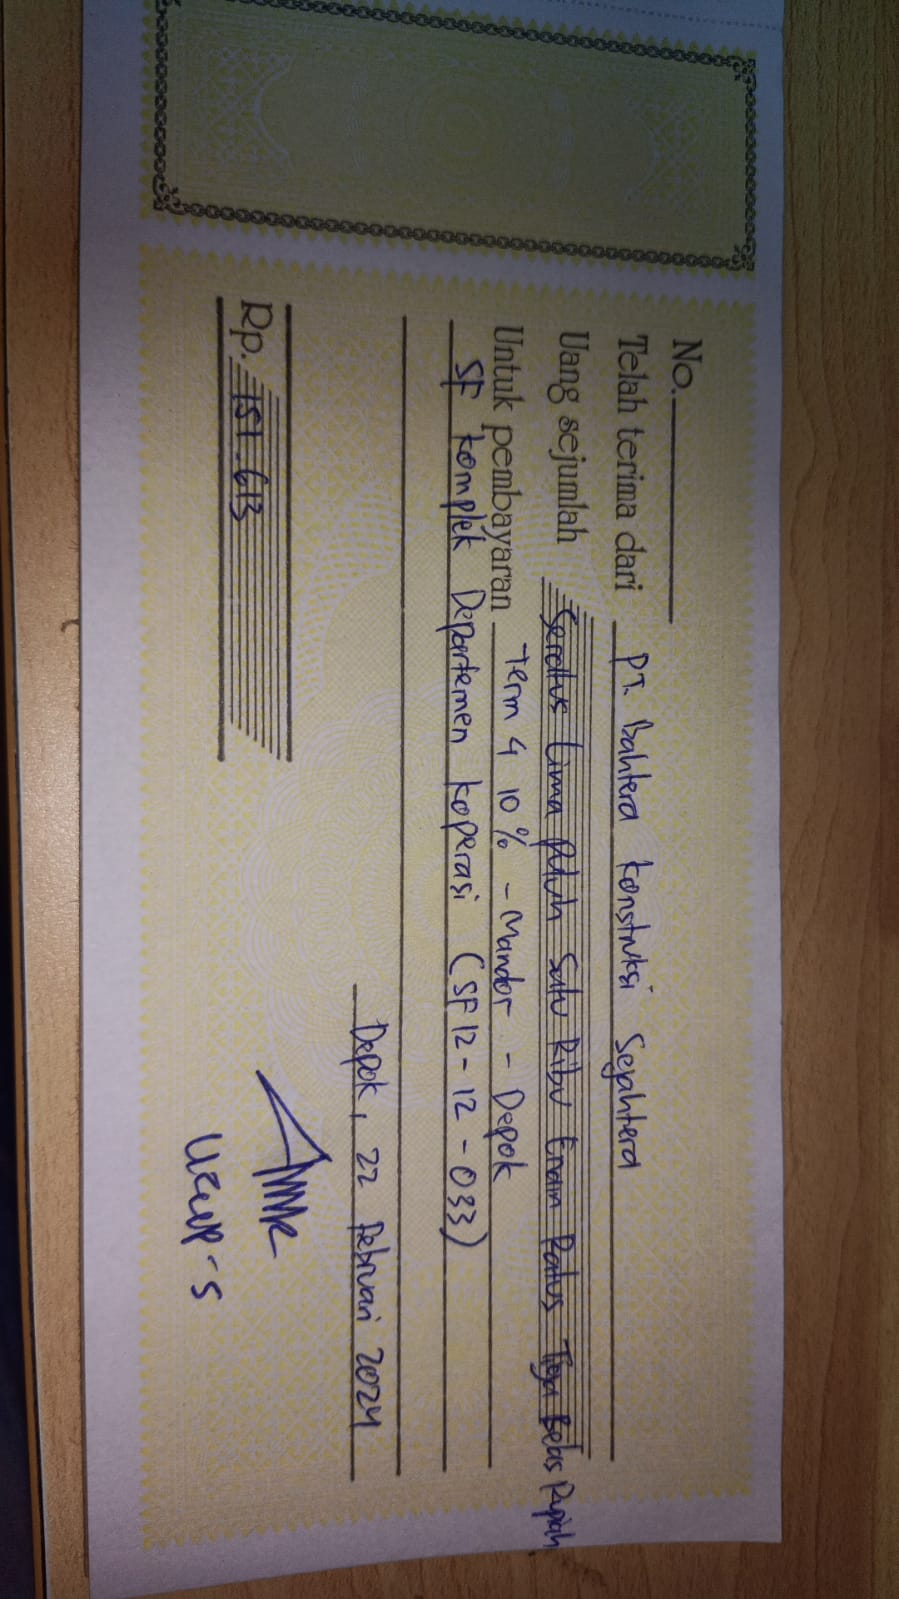 No.
Telah terima dari PT. Bahtera Konstruksi Sejahtera
Uang sejumlah Seratus Lima Puluh Satu Ribu Enam Ratus Tiga Belas Rupiah
Untuk pembayaran Term 4 10% - Mandor - Depok
SF Komplek Departemen Koperasi (SF12-12-033)
Depok, 22 Februari 2024
Rp. 151.613